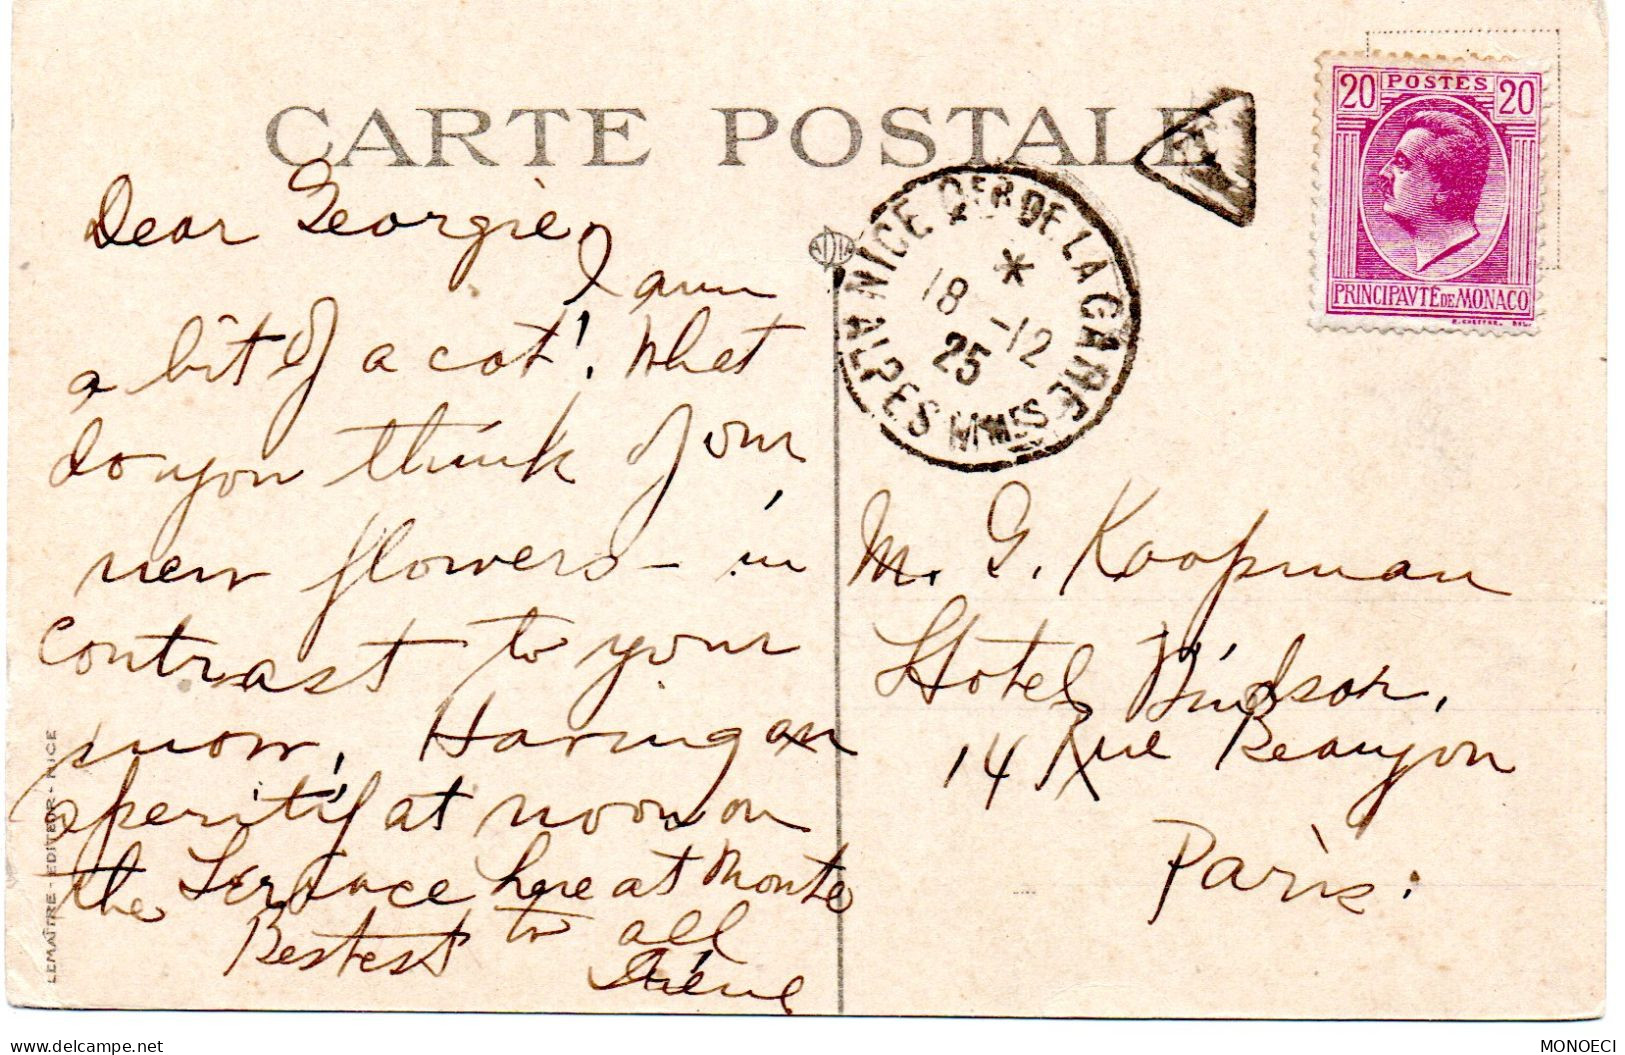 CARTE POSTALE
Dear Georgie,
I am
a bit of a cat! What
do you think of our
new flowers - in
contrast to your
snow. Having an
aperitif at noon on
the Terrace here at Monte
Bestest to all
Irène
LEMAÎTRE - EDITEUR - NICE
NICE QER DE LA GARE
18 -12
25
ALPES MMES
20 POSTES 20
PRINCIPAVTÉ DE MONACO
M. G. Koopman
Hotel Windsor,
14 Rue Beaujon
Paris.
delcampe.net
MONOECI